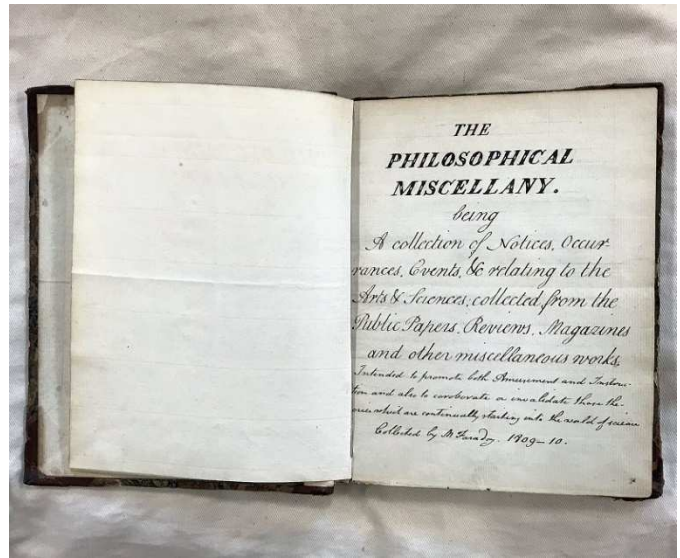 THE
PHILOSOPHICAL
MISCELLANY.
being
A collection of Notices, Occur-
rances, Events, &c relating to the
Arts & Sciences, collected from the
Public Papers, Reviews, Magazines
and other miscellaneous works,
Intended to promote both Amusement and Instruc-
tion and also to corroborate or invalidate those the-
ories which are continually starting into the world of science
Collected by M. Faraday. 1809-10.